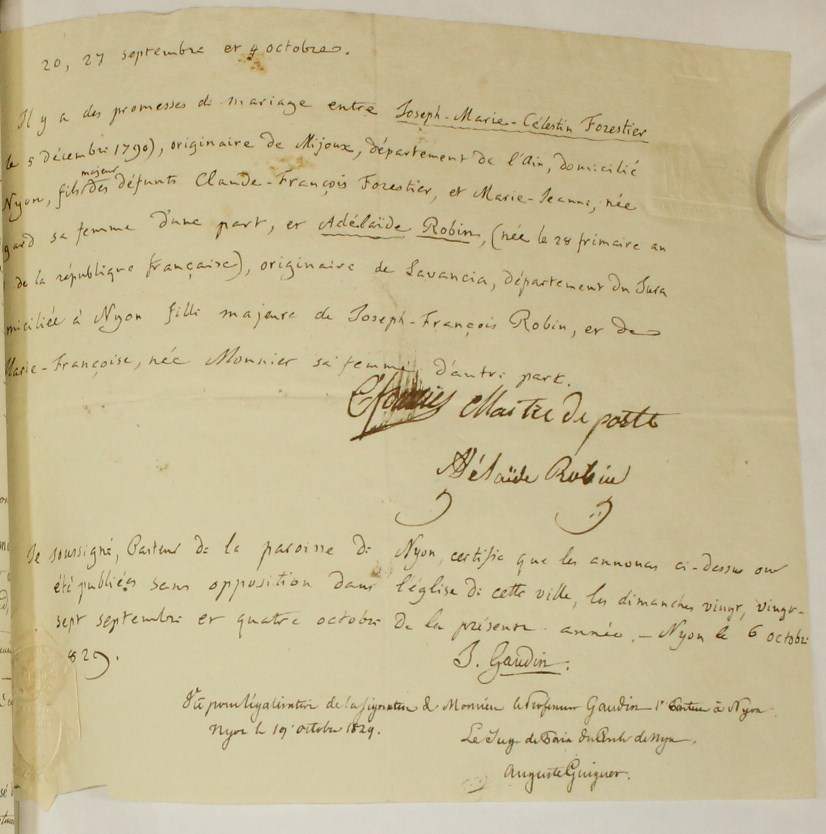 20, 27 septembre et 4 octobre.
Il y a des promesses de mariage entre Joseph-Marie-Célestin Forestier
le 5 décembre 1790), originaire de Mijoux, département de l'Ain, domicilié
Nyon, fils majeur des défunts Claude-François Forestier, et Marie-Jeanne, née
gard sa femme d'une part, et Adélaïde Robin, (née le 28 frimaire an
de la république française), originaire de Lavancia, département du Jura
miciliée à Nyon fille majeure de Joseph-François Robin, et de
Marie-Françoise, née Monnier sa femme d'autre part.
Maitre de poste
Adélaïde Robin
Je soussigné, Pasteur de la paroisse de Nyon, certifie que les annonces ci-dessus ont
été publiées sans opposition dans l'église de cette ville, les dimanches vingt, vingt-
sept septembre et quatre octobre de la présente année. – Nyon le 6 octobre
1829.
J. Gaudin.
Vu pour légalisation de la signature de Monsieur le Professeur Gaudin 1er Pasteur à Nyon.
Nyon le 19 octobre 1829.
Le Juge de Paix du Cercle de Nyon,
Auguste Guiguer.